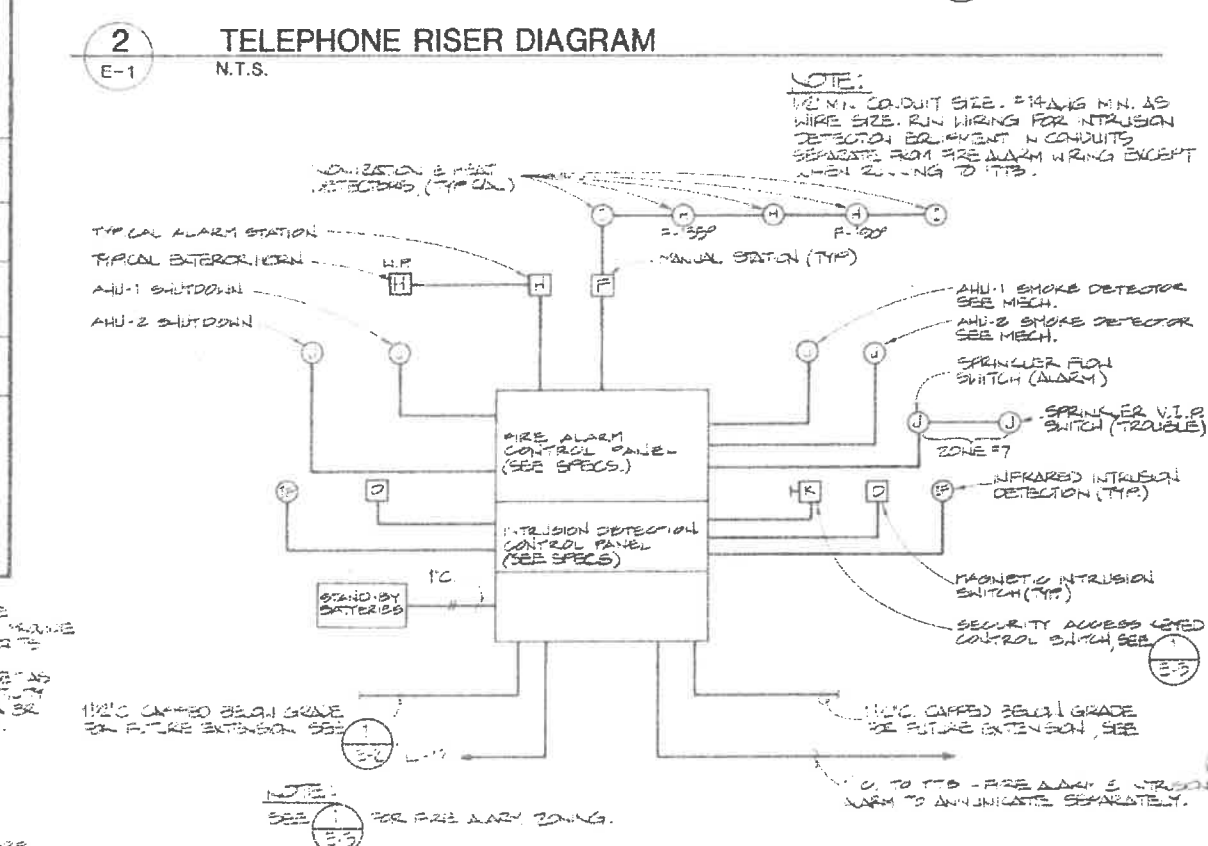 2
E-1
TELEPHONE RISER DIAGRAM
N.T.S.
NOTE:
1/2" MIN. CONDUIT SIZE. #14 AWG MIN. AS
WIRE SIZE. RUN WIRING FOR INTRUSION
DETECTION EQUIPMENT IN CONDUITS
SEPARATE FROM FIRE ALARM WIRING EXCEPT
WHEN RUNNING TO TTB.
IONIZATION & HEAT
DETECTORS, (TYPICAL)
F-135°
F-190°
TYPICAL ALARM STATION
TYPICAL EXTERIOR HORN
W.P.
H
H
F
MANUAL STATION (TYP)
AHU-1 SHUTDOWN
AHU-2 SHUTDOWN
AHU-1 SMOKE DETECTOR
SEE MECH.
AHU-2 SMOKE DETECTOR
SEE MECH.
SPRINKLER FLOW
SWITCH (ALARM)
J
J
J
J
J
J
SPRINKLER V.I.P.
SWITCH (TROUBLE)
ZONE #7
FIRE ALARM
CONTROL PANEL
(SEE SPECS.)
D
K
D
INFRARED INTRUSION
DETECTION (TYP.)
INTRUSION DETECTION
CONTROL PANEL
(SEE SPECS)
1"C.
STAND-BY
BATTERIES
MAGNETIC INTRUSION
SWITCH (TYP.)
SECURITY ACCESS KEYED
CONTROL SWITCH, SEE
1
E-3
1 1/2"C CAPPED BELOW GRADE
FOR FUTURE EXTENSION SEE
1
E-2
1 1/2"C. CAPPED BELOW GRADE
FOR FUTURE EXTENSION, SEE
TO TTB - FIRE ALARM & INTRUSION
ALARM TO ANNUNCIATE SEPARATELY.
NOTE:
SEE
1
E-3
FOR FIRE ALARM ZONING.